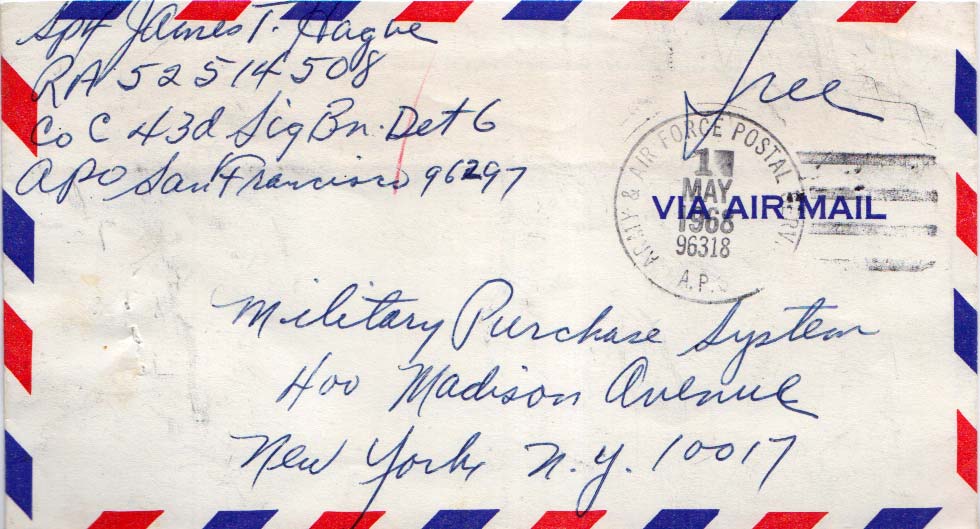 Sp4 James T. Hague
RA 52514508
Co C 43d Sig Bn. Det 6
APO San Francisco 96297
Free
ARMY & AIR FORCE POSTAL SERV.
1
MAY
1968
96318
A.P.O.
VIA AIR MAIL
Military Purchase System
400 Madison Avenue
New York N.Y. 10017